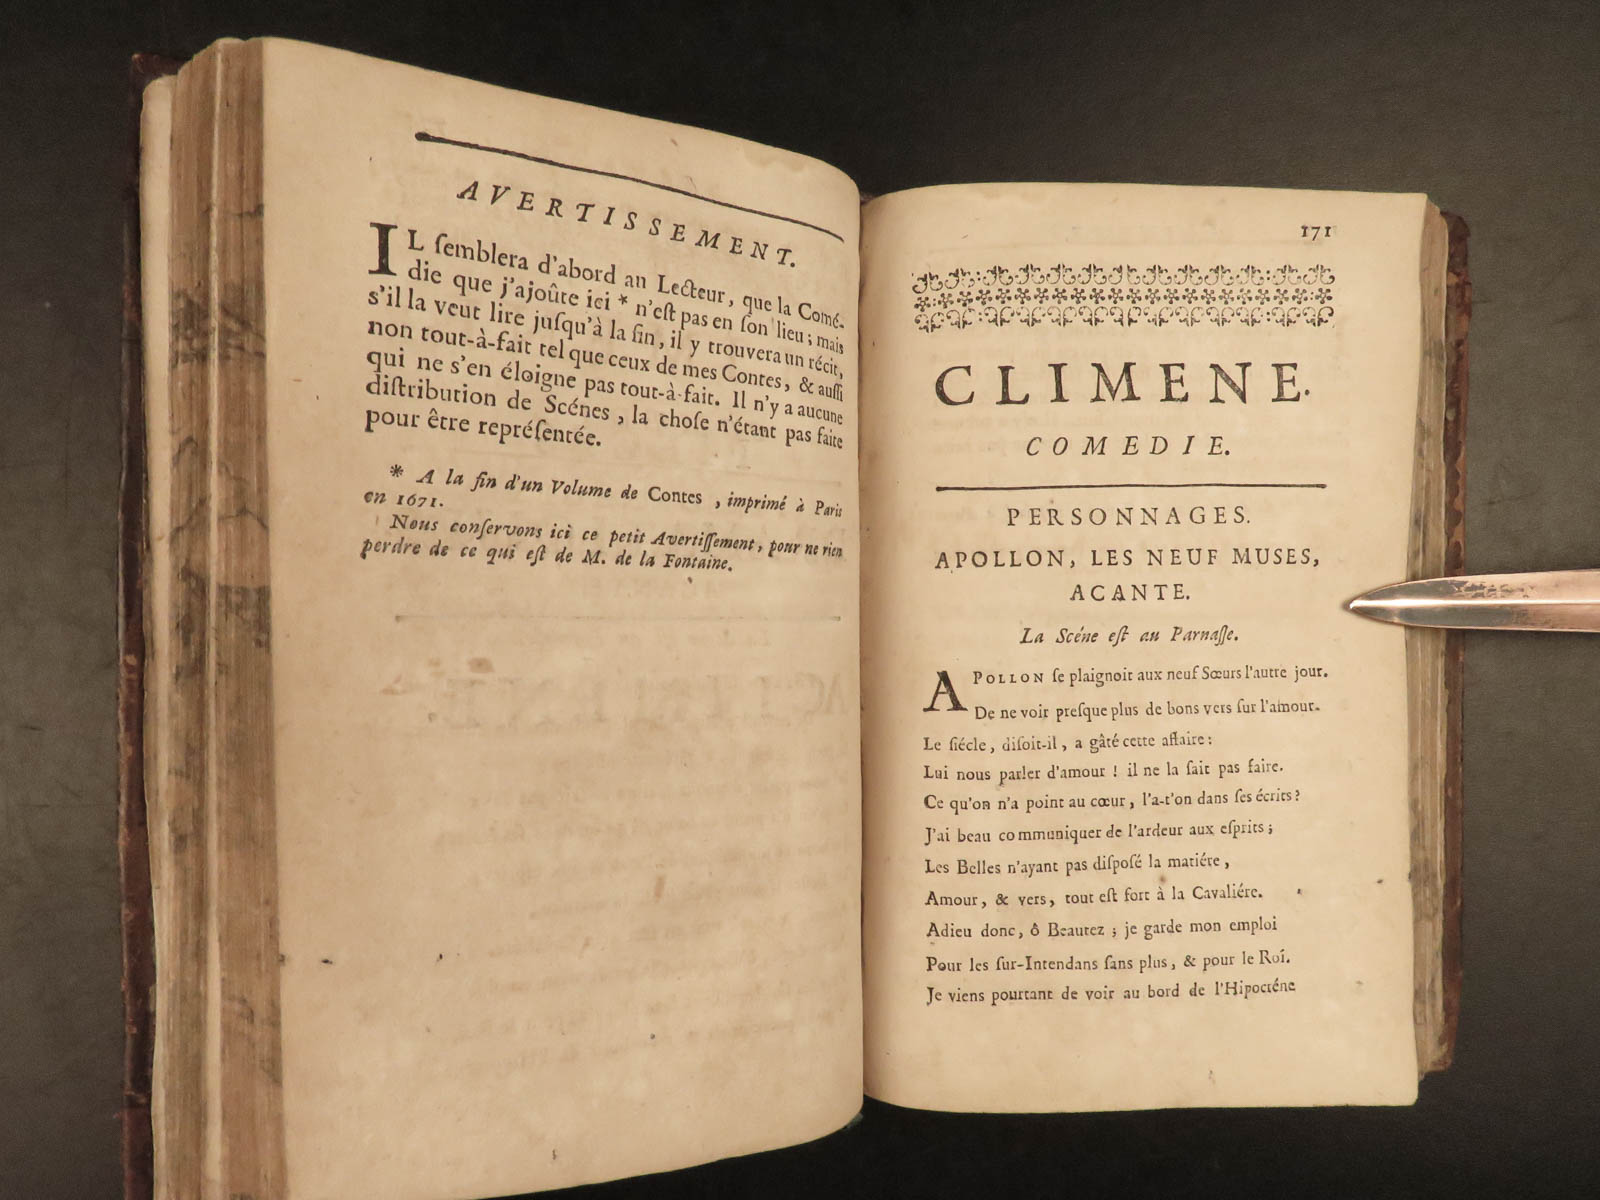 AVERTISSEMENT.
IL ſemblera d'abord au Lecteur, que la Comé-
die que j'ajoûte ici * n'eſt pas en ſon lieu; mais
s'il la veut lire juſqu'à la fin, il y trouvera un récit,
non tout-à-fait tel que ceux de mes Contes, & auſſi
qui ne s'en éloigne pas tout-à-fait. Il n'y a aucune
diſtribution de Scénes, la choſe n'étant pas faite
pour être repréſentée.
* A la fin d'un Volume de Contes, imprimé à Paris
en 1671.
Nous conſervons ici ce petit Avertiſſement, pour ne rien
perdre de ce qui eſt de M. de la Fontaine.
171
CLIMENE.
COMEDIE.
PERSONNAGES.
APOLLON, LES NEUF MUSES,
ACANTE.
La Scéne eſt au Parnaſſe.
APOLLON ſe plaignoit aux neuf Sœurs l'autre jour.
De ne voir preſque plus de bons vers ſur l'amour.
Le ſiécle, diſoit-il, a gâté cette affaire:
Lui nous parler d'amour! il ne la ſait pas faire.
Ce qu'on n'a point au cœur, l'a-t'on dans ſes écrits?
J'ai beau communiquer de l'ardeur aux eſprits;
Les Belles n'ayant pas diſpoſé la matiére,
Amour, & vers, tout eſt fort à la Cavaliére.
Adieu donc, ô Beautez; je garde mon emploi
Pour les ſur-Intendans ſans plus, & pour le Roí.
Je viens pourtant de voir au bord de l'Hipocréne